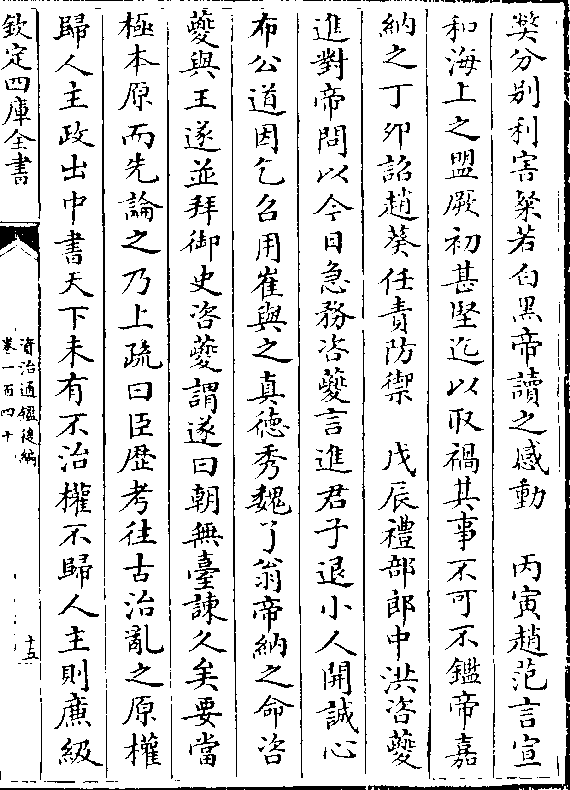 獘分别利害粲若白黒帝讀之感動　丙寅趙范言宣
和海上之盟厥初甚堅迄以取禍其事不可不鑑帝嘉
納之丁卯詔趙葵任責防禦　戊辰禮部郎中洪咨夔
進對帝問以今日急務咨夔言進君子退小人開誠心
布公道因乞召用崔與之真徳秀魏了翁帝納之命咨
夔與王遂並拜御史咨夔謂遂曰朝無臺諫久矣要當
極本原而先論之乃上疏曰臣歴考往古治亂之原權
歸人主政出中書天下未有不治權不歸人主則亷級
欽定四庫全書
資治通鑑後編
卷一百四十
十五